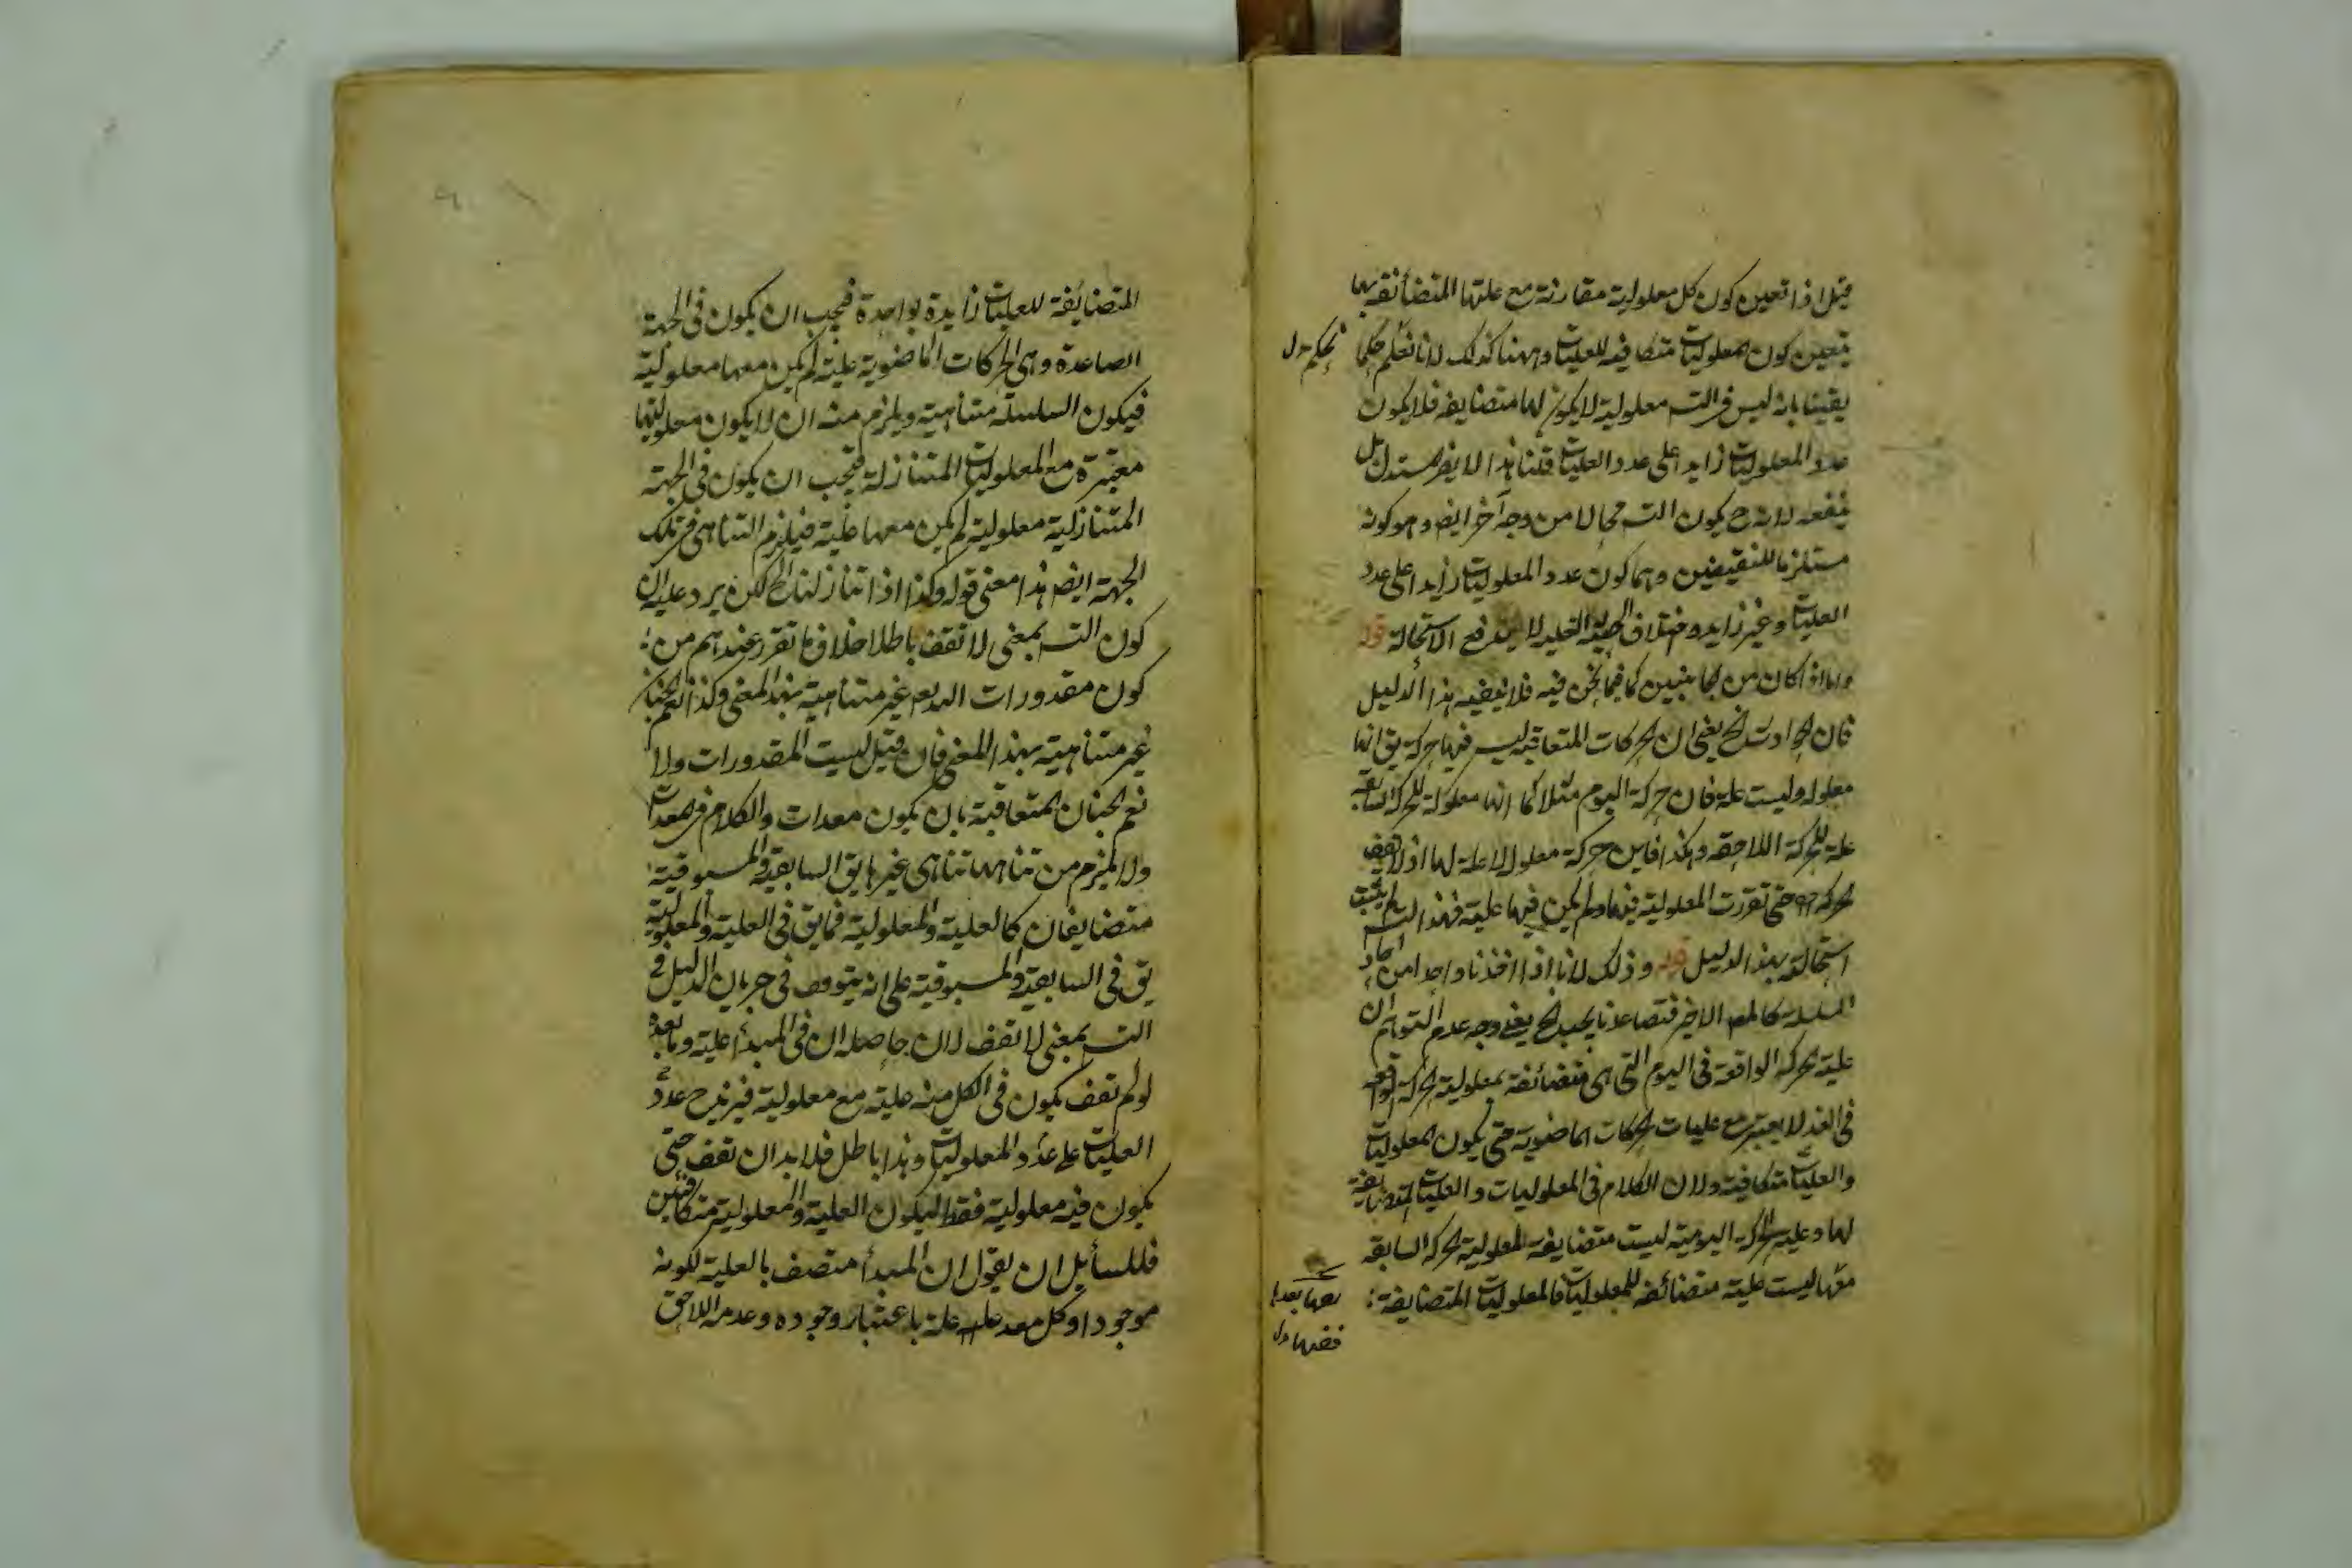 قيل اذا تعين كون كل معلولية مقارنة مع علتها المتضائفة بها
يتعين كون المعلوليات متضايفة للعليات وههنا كذلك لانا نعلم حكما
يقينا بانه ليس في التس معلولية لا يكون لها متضايفه فلا يكون
عدد المعلوليات زايدا على عدد العليات قلنا هذا لا يضر المستدل بل
ينفعه لانه ح يكون التس محالا من وجه آخر ايض وهو كونه
مستلزما للنقيضين وهما كون عدد المعلوليات زايدا على عدد
العليات وغير زايد واختلاف لا يدفع الاستحالة قوله
واما اذا كان من الجانبين كما فيما نحن فيه فلا هذا الدليل
فان الحوادث الخ يعني ان الحركات المتعاقبة ليس فيها حركة يق انها
معلولة وليست علة فان حركة اليوم مثلا كما انها معلولة للحركة السابقة
علة للحركة اللاحقة وهكذا فاين حركة معلول لا علة لها اذ لا تقف
الحركة حتى تقررت المعلولية فيها ولم يكن فيها علية فهذا التس لم يثبت
استحالته بهذا الدليل قوله وذلك لانا اذا اخذنا واحدا من احاد
السلسلة كالمعلول الاخير فتصاعدنا يجب الخ يعني وجه عدم التوائم ان
علية الحركة الواقعة في اليوم التي هي متضائفة بمعلولية الحركة الواقعة
في الغد لا يعتبر مع عليات الحركات الماضوية حتى يكون المعلوليات
والعليات متكافية ولان الكلام في المعلوليات والعليات المتضايفة
لها وعلية الحركة اليومية ليست متضايفة لمعلولية الحركة السابقة
معها ليست علية متضائفة للمعلوليات فالمعلوليات المتضايفة
نحكم بدل
المتضائفة للعليات زايدة بواحدة فيجب ان يكون في الجهة
الصاعدة وهي الحركات الماضوية علية لم يكن معها معلولية
فيكون السلسلة متناهية ويلزم منه ان لا يكون معلوليتها
معتبرة مع المعلوليات المتنازلة فيجب ان يكون في الجهة
المتنازلية معلولية لم يكن معها علية فيلزم التناهي في تلك
الجهة ايض هذا معنى قوله وكذا اذا تنازلنا الخ لكن يرد عليه ان
كون التس بمعنى لا تقف باطلا خلاف ما تقرر عندهم من
كون مقدورات الله تع غير متناهية بهذا المعنى وكذا نعم الجنان
غير متناهية بهذا المعنى فان قيل ليست المقدورات ولا
نعم الجنان متعاقبة بان يكون معدات والكلام في المعدات
ولا يلزم من تناهيها تناهي غيرها يق السابقية والمسبوقية
متضايفان كالعلية والمعلولية فما يق في العلية والمعلولية
يق في السابقية والمسبوقية على انه يتوقف في جريان الدليل في
التس بمعنى لا تقف لان حاصله ان في المبدأ علية وما بعده
لو لم تقف يكون في الكل منه علية مع معلولية فيزيد ح عدد
العليات على عدد المعلوليات وهذا باطل فلا بد ان تقف حتى
يكون فيه معلولية فقط ليكون العلية والمعلولية متكافيتين
فللسايل ان يقول ان المبدأ متصف بالعلية لكونه
موجودا وكل معد علة باعتبار وجوده وعدمه اللاحق